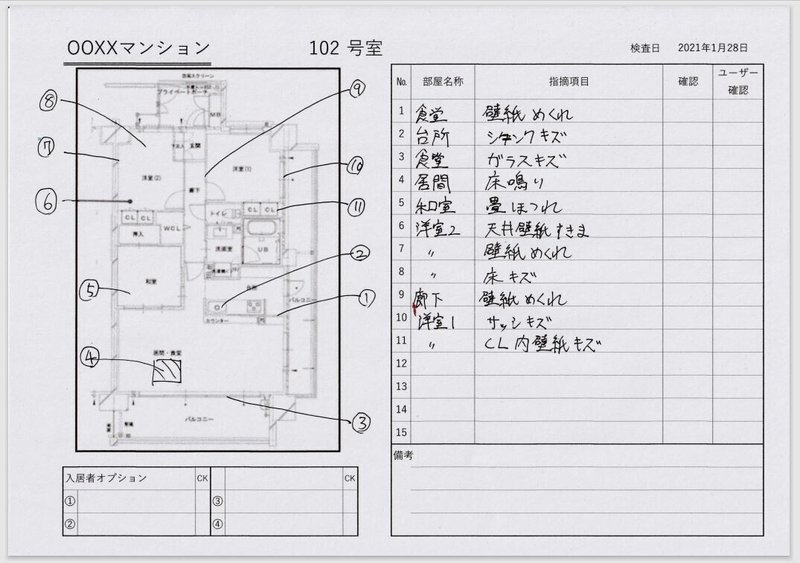 OOXXマンション
102 号室
検査日 2021年1月28日
No. 部屋名称 指摘項目 確認 ユーザー確認
1 食堂 壁紙めくれ
2 台所 シンクキズ
3 食堂 ガラスキズ
4 居間 床鳴り
5 和室 畳ほつれ
6 洋室2 天井壁紙すきま
7 〃 壁紙めくれ
8 〃 床キズ
9 廊下 壁紙めくれ
10 洋室1 サッシキズ
11 〃 CL内壁紙キズ
12
13
14
15
備考
防風スクリーン
プライベートポーチ
MB
玄関
下足入
洋室(2)
洋室(1)
廊下
トイレ
CL CL
CL CL
押入
WCL
洗面室
UB
和室
台所
カウンター
バルコニー
居間・食堂
バルコニー
⑧
⑦
⑥
⑤
④
⑨
⑩
⑪
②
①
③
入居者オプション CK CK
① ③
② ④